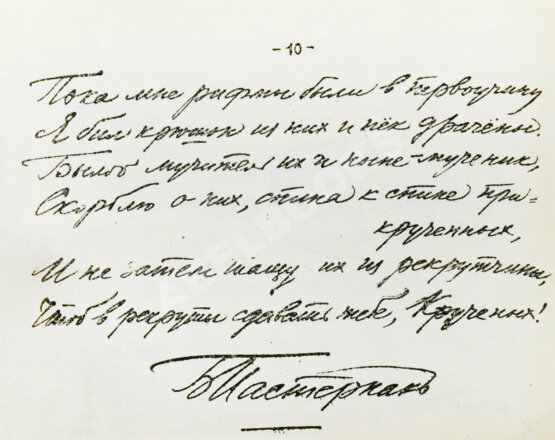 - 10 -
Пока мне рифмы были в первоучину
Я бил крюшон из них и пек драчёны.
Былой мучитель их и ныне-мученик,
Скорблю о них, спина к спине при-
крученных,
И не затем тащу их из рекрутчины,
Чтоб в рекруты сдавать тебе, Крученых!
Б Пастернакъ